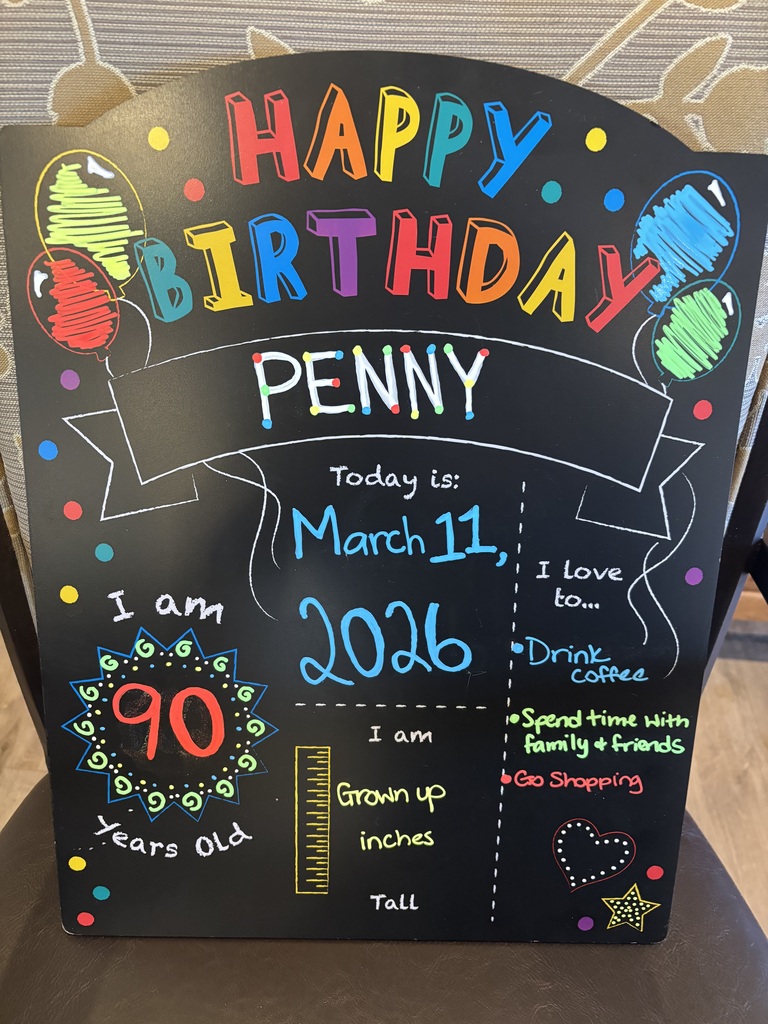 HAPPY
BIRTHDAY
PENNY
Today is:
March 11,
2026
I am
90
Years Old
I am
Grown up
inches
Tall
I love
to...
• Drink
coffee
• Spend time with
family + friends
• Go Shopping